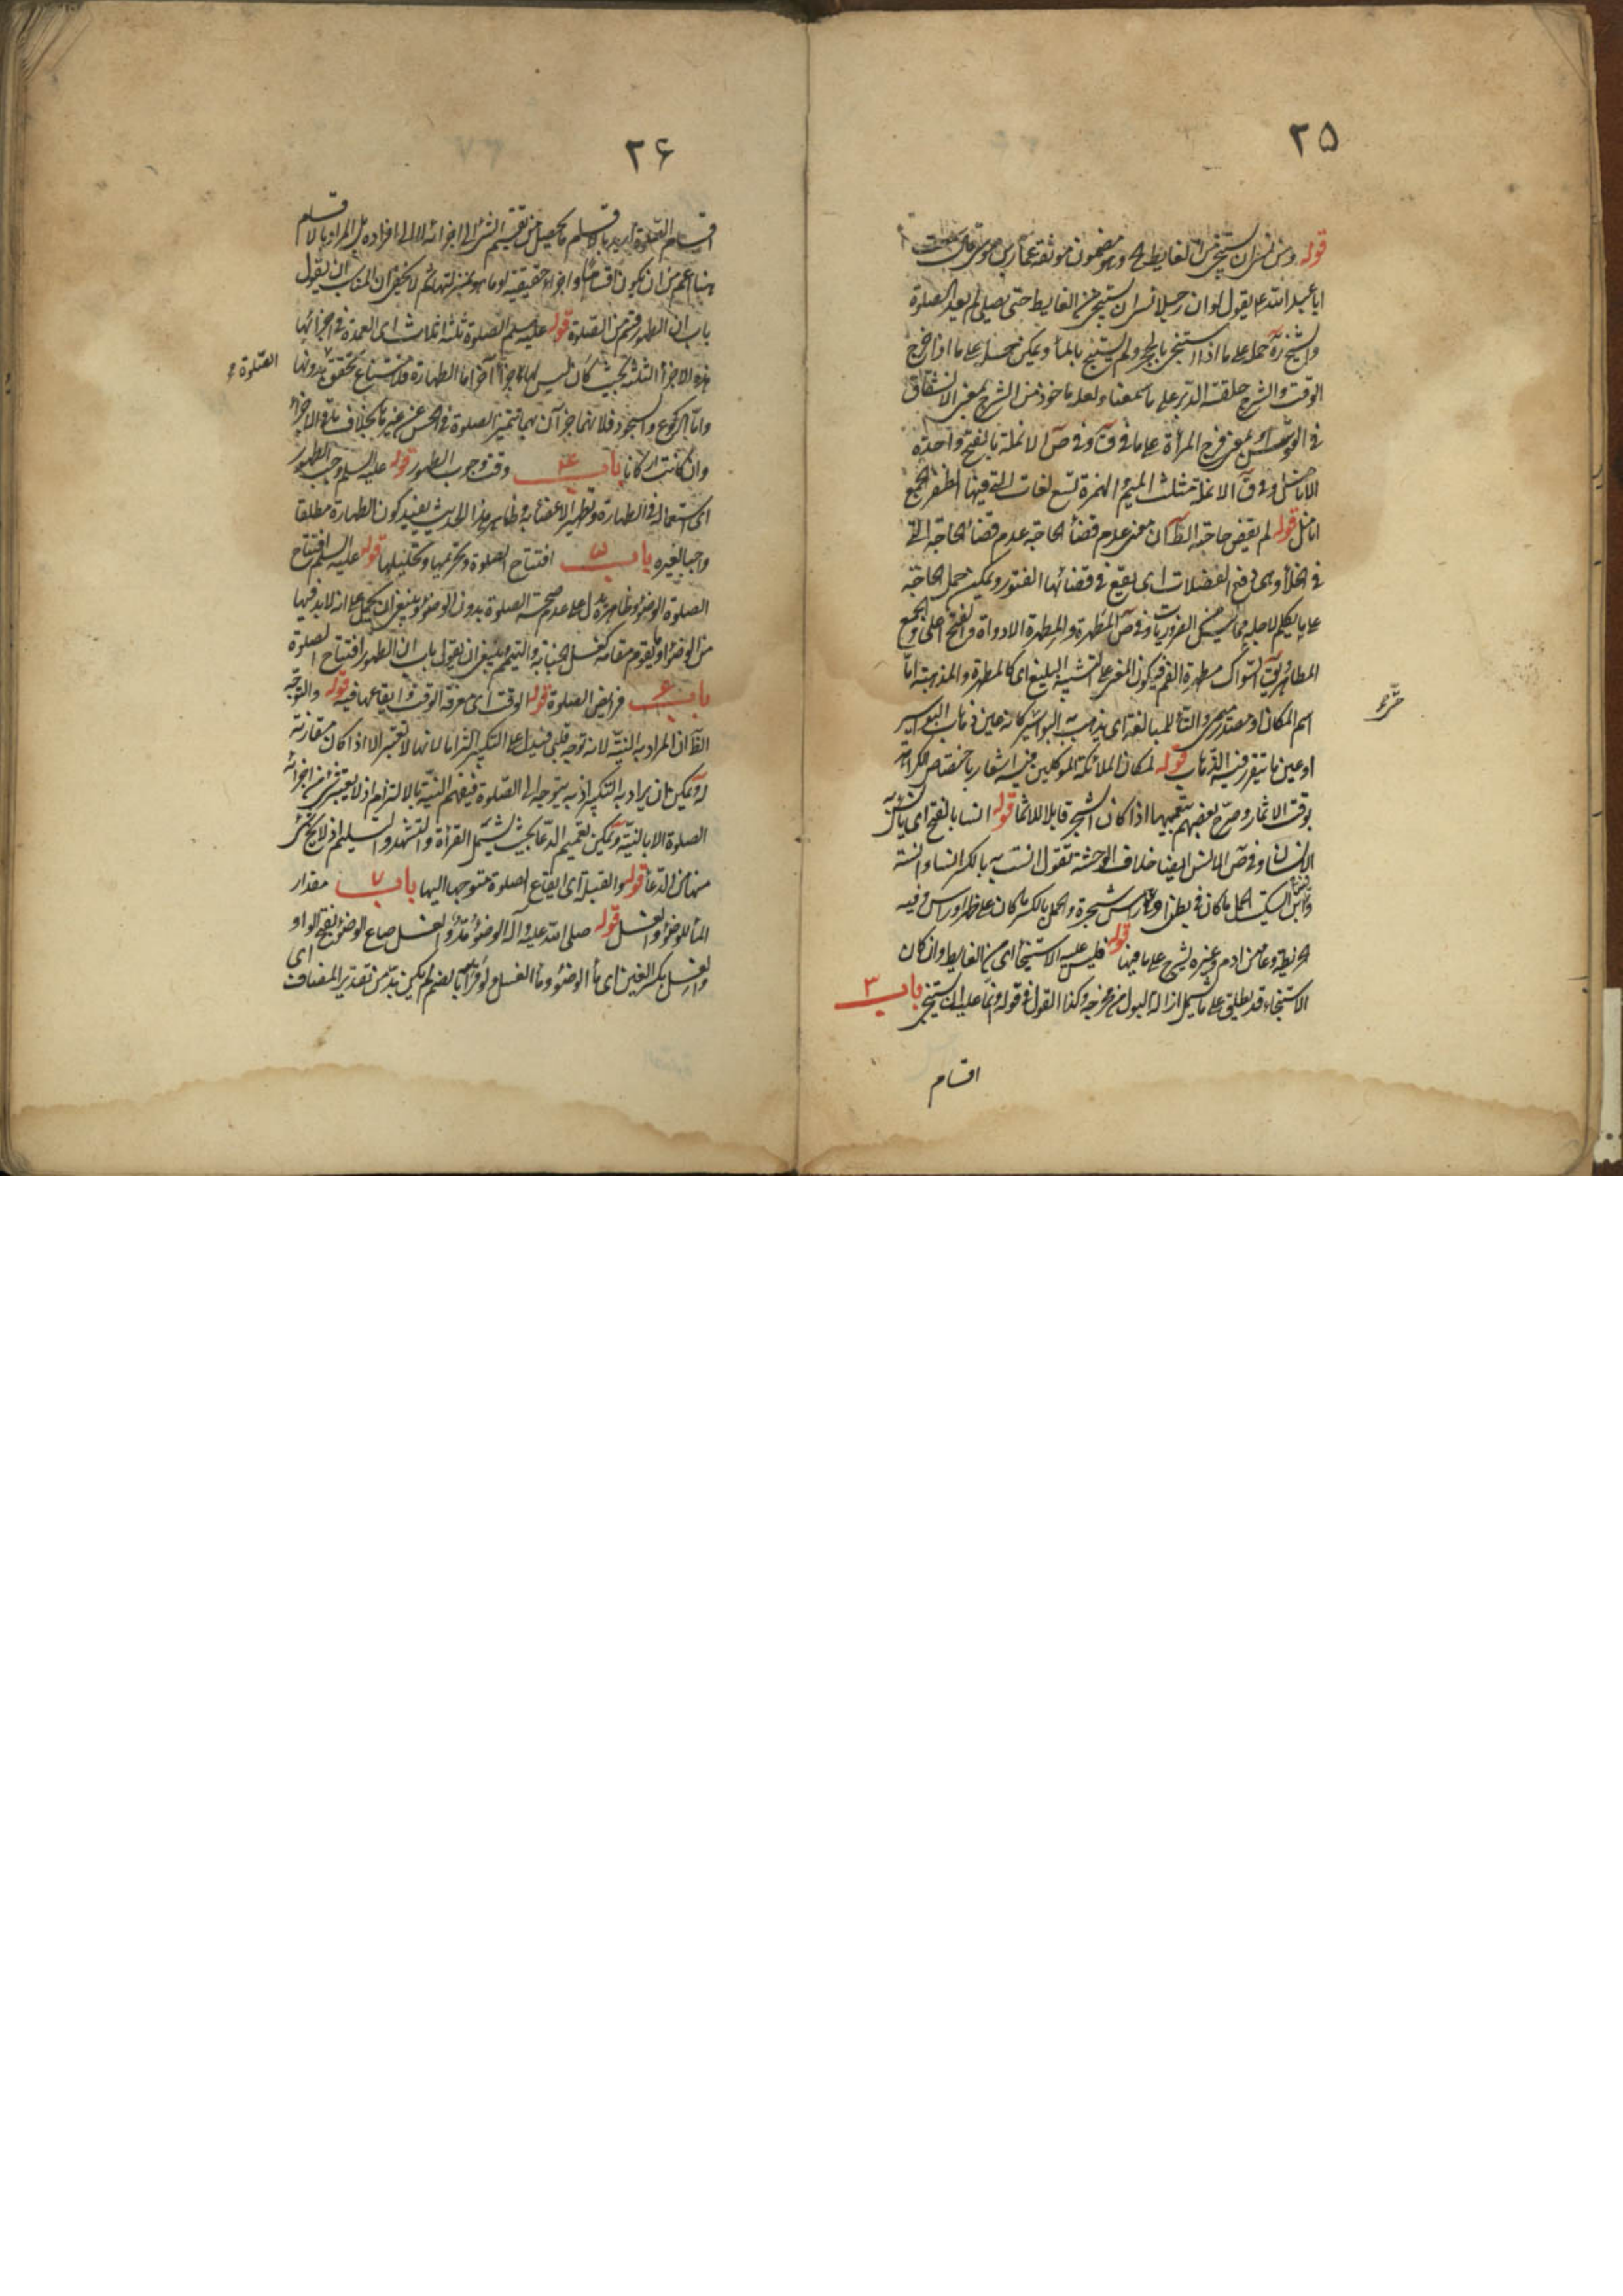 ٢٥
قوله ومن نسى ان يستنجى من الغايط الخ وهو مضمون موثقة عمار بن موسى قال سمعت
ابا عبد الله ع يقول لو ان رجلا نسى ان يستنجى من الغايط حتى يصلى لم يعد الصلوة
والشيخ ره حمله على ما اذا استنجى بالحجر ولم يستنج بالماء ويمكن حمله على ما اذا خرج
الوقت والشرج حلقة الدبر على ما سمعنا ولعله ماخوذ من الشرج بمعنى الانشقاق
فى القوس او بمعنى فرج المرأة على ما فى ق وفى ص الانملة بالفتح واحدة
الانامل وفى ق الانملة بتثليث الميم والهمزة تسع لغات التى فيها الظفر الجمع
انامل قوله لم يقض حاجته الظ ان معنى عدم قضأ الحاجة عدم قضأ الحاجة التى
فى الخلأ وهى دفع الفضلات اى يقع فى قضائها الفتور ويمكن حمل الحاجة
على ما يتكلم لاجله مما سيشمل الضروريات وفى ص المَطهرة والمِطهرة الاداوة والفتح اعلى والجمع
المطاهر ويق السواك مطهرة للفم فيكون المعنى على التشبيه البليغ اى كالمطهرة والمذهبة اما
اسم المكان او مصدر ميمى والتأ للمبالغة اى يذهب به البواسير كانه عين ذهاب البواسير
او عين ما يتقرر فيه الذهاب قوله لمكان الملائكة الموكلين فيه اشعار باختصاص الكراهة
بوقت الاثمار وصرح بعضهم بتعميمها اذا كان الشجر قابلا للاثمار قوله انسا بالفتح اى يأنس به
الانسان وفى ص الانس ايضا خلاف الوحشة تقول انست به بالكسر انسا وانسة
وقال ابن السكيت الحمل ما كان فى بطن او على رأس شجرة والحمل بالكسر ما كان على ظهر او رأس وفيه
الخريطة وعاء من ادم وغيره يشرج على ما فيها قوله فليس عليه الاستنجأ اى من الغايط وان كان
الاستنجاء قد يطلق على ما يشمل ازالة البول من مخرجه وكذا القول فى قوله وانما عليه ان يستنجى باب ٣
اقسام
٢۶
اقسام الصلوة اريد بالاقسام ما يحصل من تقسيم الشئ الى اجزائه لا الى افراده بل المراد بالاقسام
هنا اعم من ان يكون اقساما واجزاء حقيقية او ما هو بمنزلتها ثم لا يخفى ان المناسب ان يقول
باب ان الطهور قسم من الصلوة قوله عليه السلم الصلوة ثلثة اثلاث اى العمدة فى اجزائها
هذه الاجزأ الثلثة بحيث كان ليس لها اجزأ اخر اما الطهارة فلامتناع تحقق بدونها
الصلوة
واما الركوع والسجود فلانهما جزآن بهما تتميز الصلوة فى الحس عن غيرها بخلاف باقى الاجزأ
وان كانت اركانا باب ۴ وقت وجوب الطهور قوله عليه السلم وجب الطهور
اى استعماله فى الطهارة وتطهير الاعضأ به وظاهر هذا الحديث يفيد كون الطهارة مطلقا
واجبا لغيره باب ۵ افتتاح الصلوة وتحريمها وتحليلها قوله عليه السلم افتتاح
الصلوة الوضؤ وظاهره يدل على عدم صحة الصلوة بدون الوضؤ وينبغى ان يحمل على انه لابد فيها
من الوضؤ او ما يقوم مقامه كغسل الجنابة والتيمم وينبغى ان يقول باب ان الطهور افتتاح الصلوة
باب ۶ فرايض الصلوة قوله الوقت اى معرفة الوقت وايقاعها فيه قوله والتوجه
الظ ان المراد به النية لانه توجه قلبى فيدل على التكبير التزاما لانها لا تعتبر الا اذا كان مقارنة
له ويمكن ان يراد به التكبير اذ به يتوجه الى الصلوة فيفهم النية بالالتزام اذ لا يعتبر شئ من اجزائه
الصلوة الا بالنية ويمكن تعميم الدعأ بحيث يشتمل القرأة والتشهد والتسليم اذ لا يخلو شئ
منها من الدعأ قوله والقبلة اى ايقاع الصلوة متوجها اليها باب ٧ مقدار
المأ للوضؤ والغسل قوله صلى الله عليه وآله الوضؤ مد والغسل صاع الوضؤ بفتح الواو
والغسل بكسر الغين اى مأ الوضؤ ومأ الغسل ولو قرأ بالضم لم يكن بد من تقدير المضاف اى